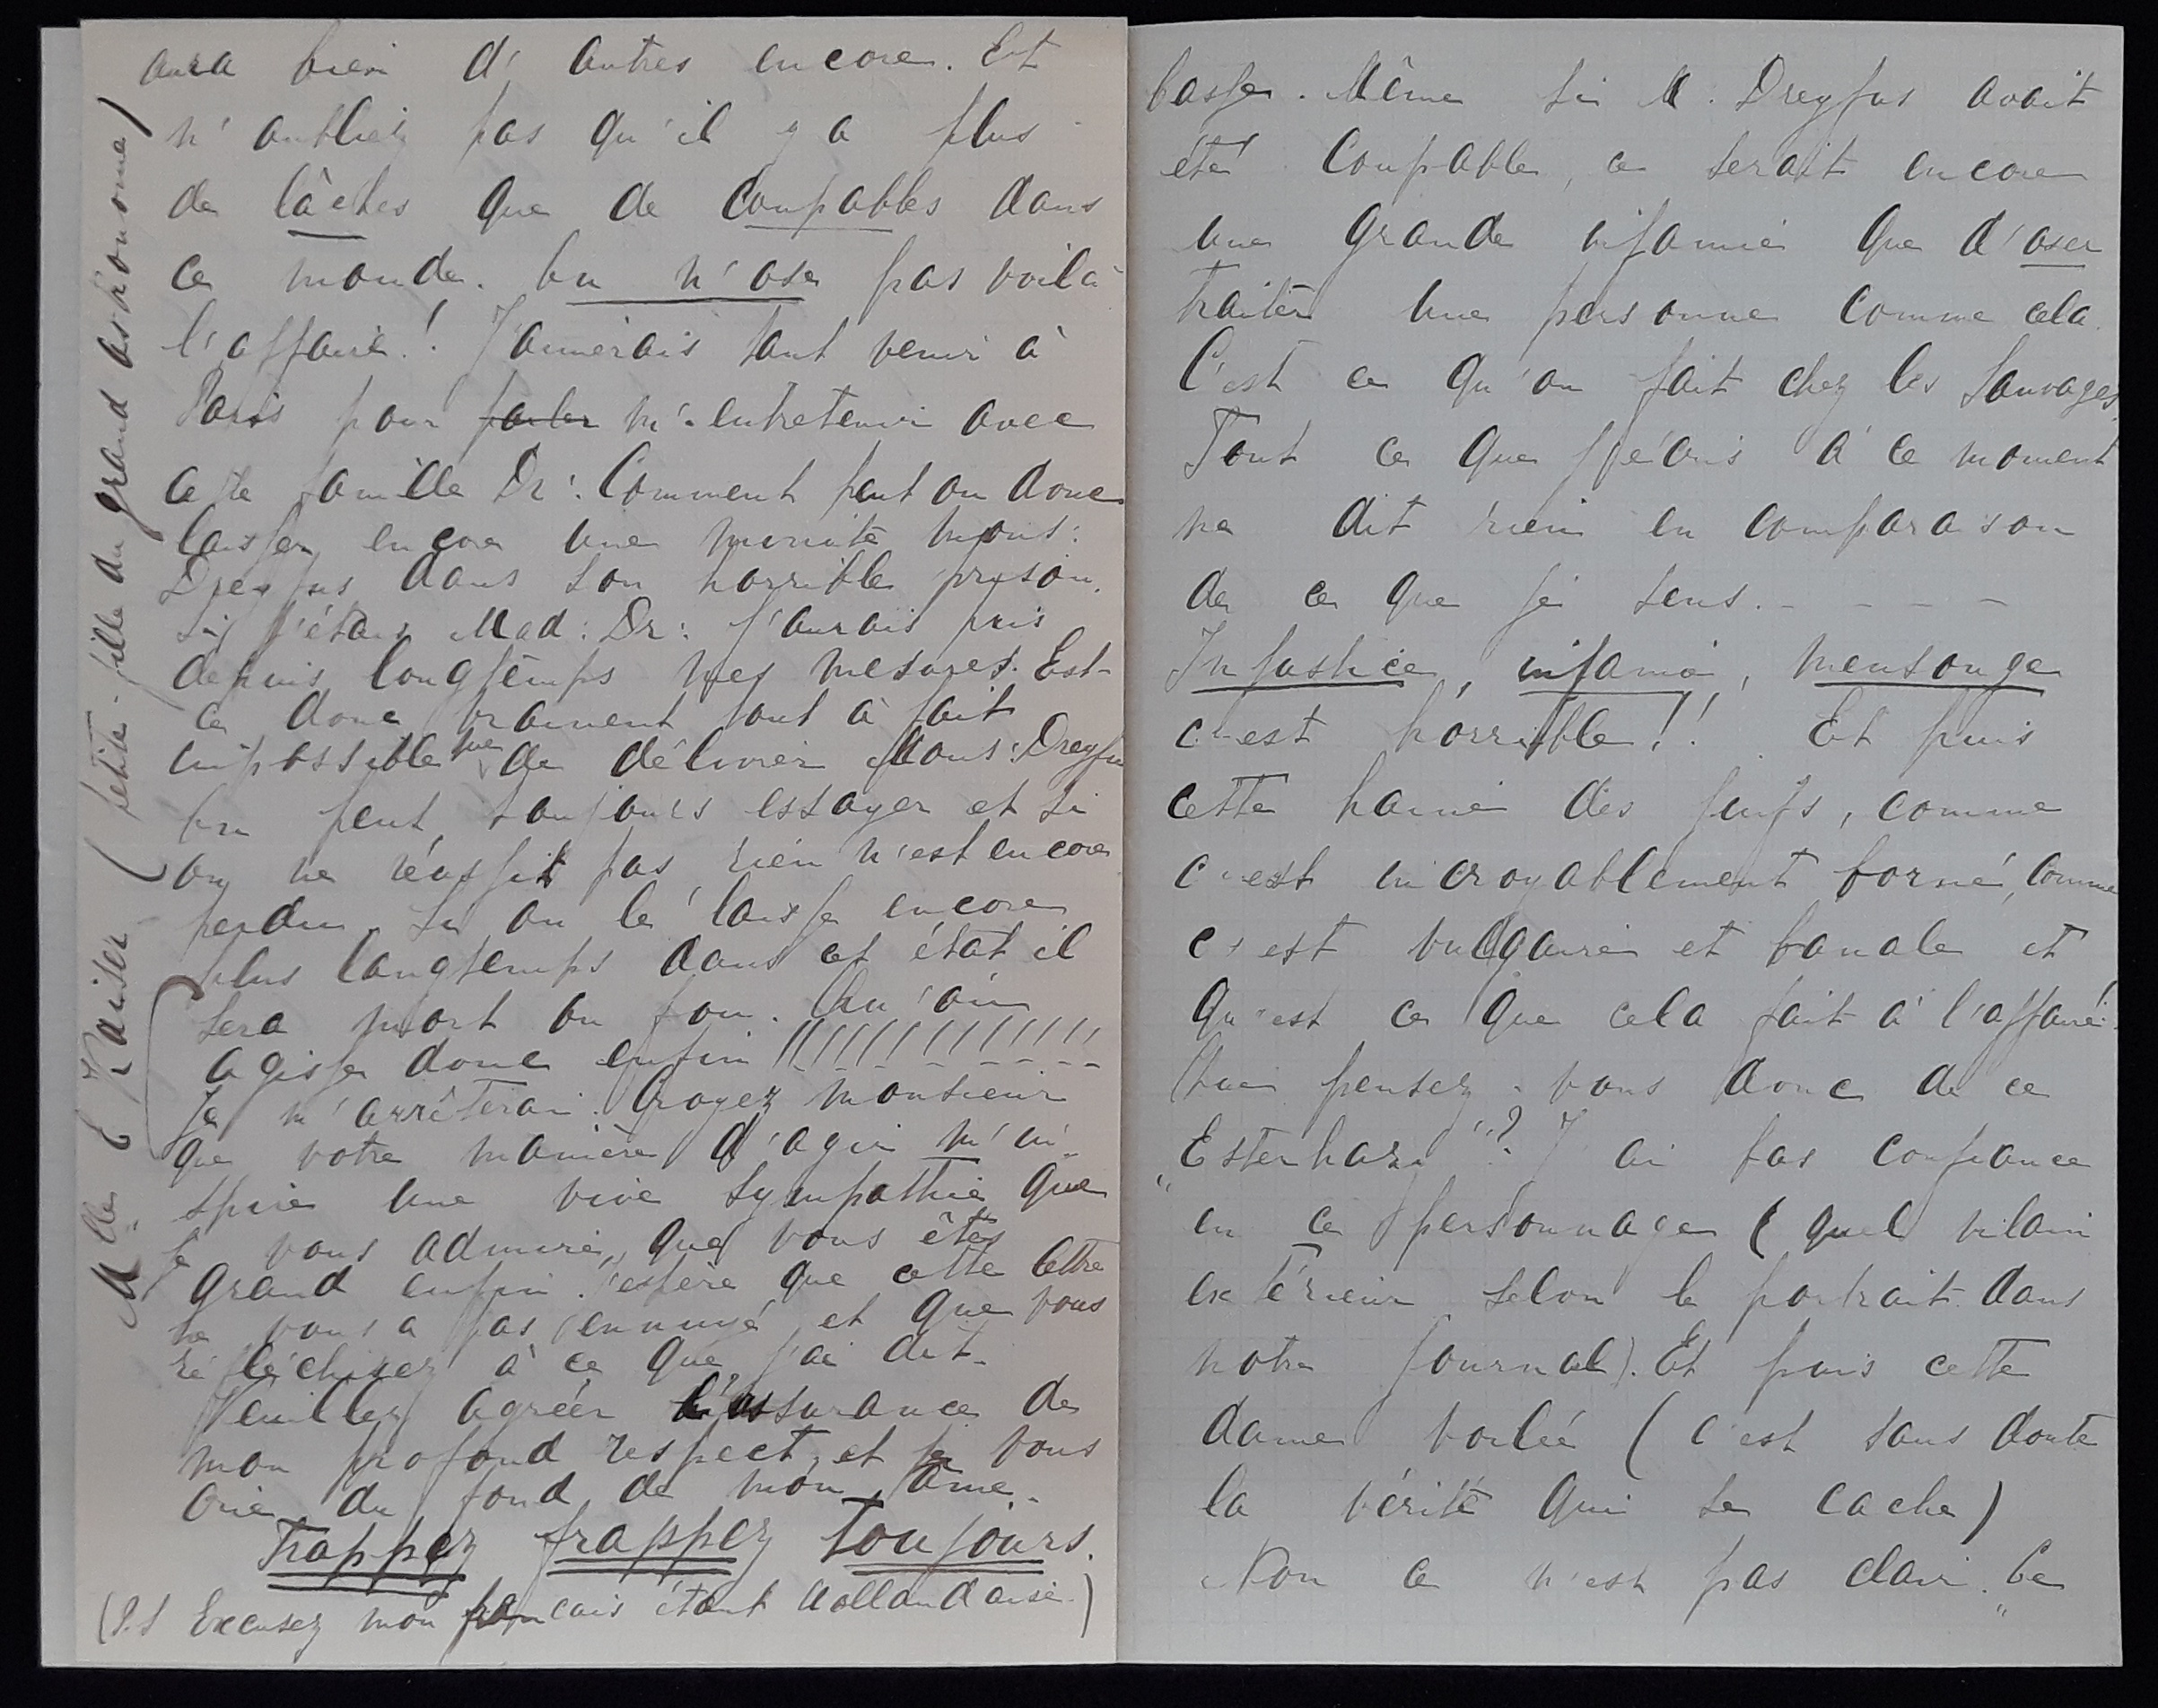 aura bien d'autres encore. Et
n'oubliez pas qu'il y a plus
de lâches que de coupables dans
ce monde. On n'ose pas voilà
l'affaire! J'aimerais tant venir à
Paris pour parler m'entretenir avec
cette famille Dr: Comment peut on donc
laisser encore une minute Mons:
Dreyfus dans son horrible prison.
Si j'étais Mad: Dr: j'aurais pris
depuis longtemps mes mesures. Est-
ce donc vraiment tout à fait
impossible de délivrer Mons: Dreyfus
On peut toujours essayer et si
on ne réussit pas rien n'est encore
perdu. Si on le laisse encore
plus longtemps dans cet état il
sera mort ou fou. Qu'on
agisse donc enfin !!!!!!!!!!!!!!
Je m'arrêterai. Croyez monsieur
que votre manière d'agir m'in-
spire une vive sympathie que
je vous admire, que vous êtes
grand enfin. J'espère que cette lettre
ne vous a pas ennuyé et que vous
réfléchisez à ce que j'ai dit.
Veuillez agréer l'assurance de
mon profond respect, et je vous
crie du fond de mon âme.
Frappez frappez toujours.
(P.S Excusez mon français étant hollandaise.)
Mlle E Kaiser (petite-fille du grand astronome)
basse. Même si M. Dreyfus avait
été coupable, ce serait encore
une grande infamie que d'oser
traiter une personne comme cela.
C'est ce qu'on fait chez les sauvages.
Tout ce que j'écris à ce moment
ne dit rien en comparaison
de ce que je sens. - - - -
Injustice, infamie, mensonge
c'est horrible!! Et puis
cette haine des juifs, comme
c'est incroyablement borné, comme
c'est vulgaire et banale et
qu'est ce que cela fait à l'affaire!
Que pensez-vous donc de ce
„Esterhazy"? J'ai pas confiance
en ce personnage (quel vilain
extérieur selon le portrait dans
notre journal). Et puis cette
dame voilée (c'est sans doute
la vérité qui se cache)
Non ce n'est pas clair. Ce